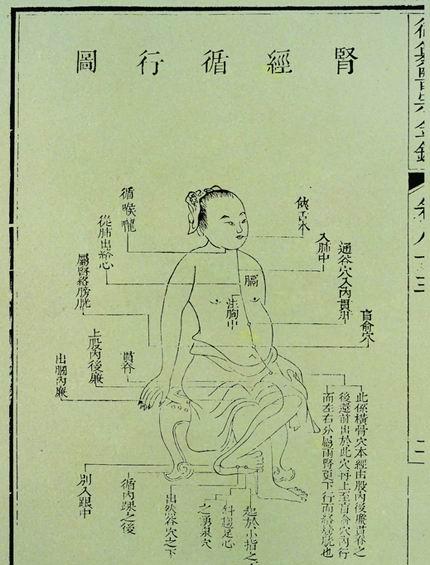 御纂醫宗金鑑
卷八十三
腎經循行圖
俠舌本
入肺中
通谷穴入內貫肝
肓俞穴
膈
注胸中
循喉嚨
從肺出絡心
屬腎絡膀胱
貫脊
上股內後廉
出膕內廉
此係橫骨穴本經由股內後廉貫脊之
後還前出於此穴再上至肓俞穴內行
而左右分屬兩腎更下行而絡膀胱也
起於小指之下
斜趨足心
之湧泉穴
出然谷穴之下
循內踝之後
別入跟中